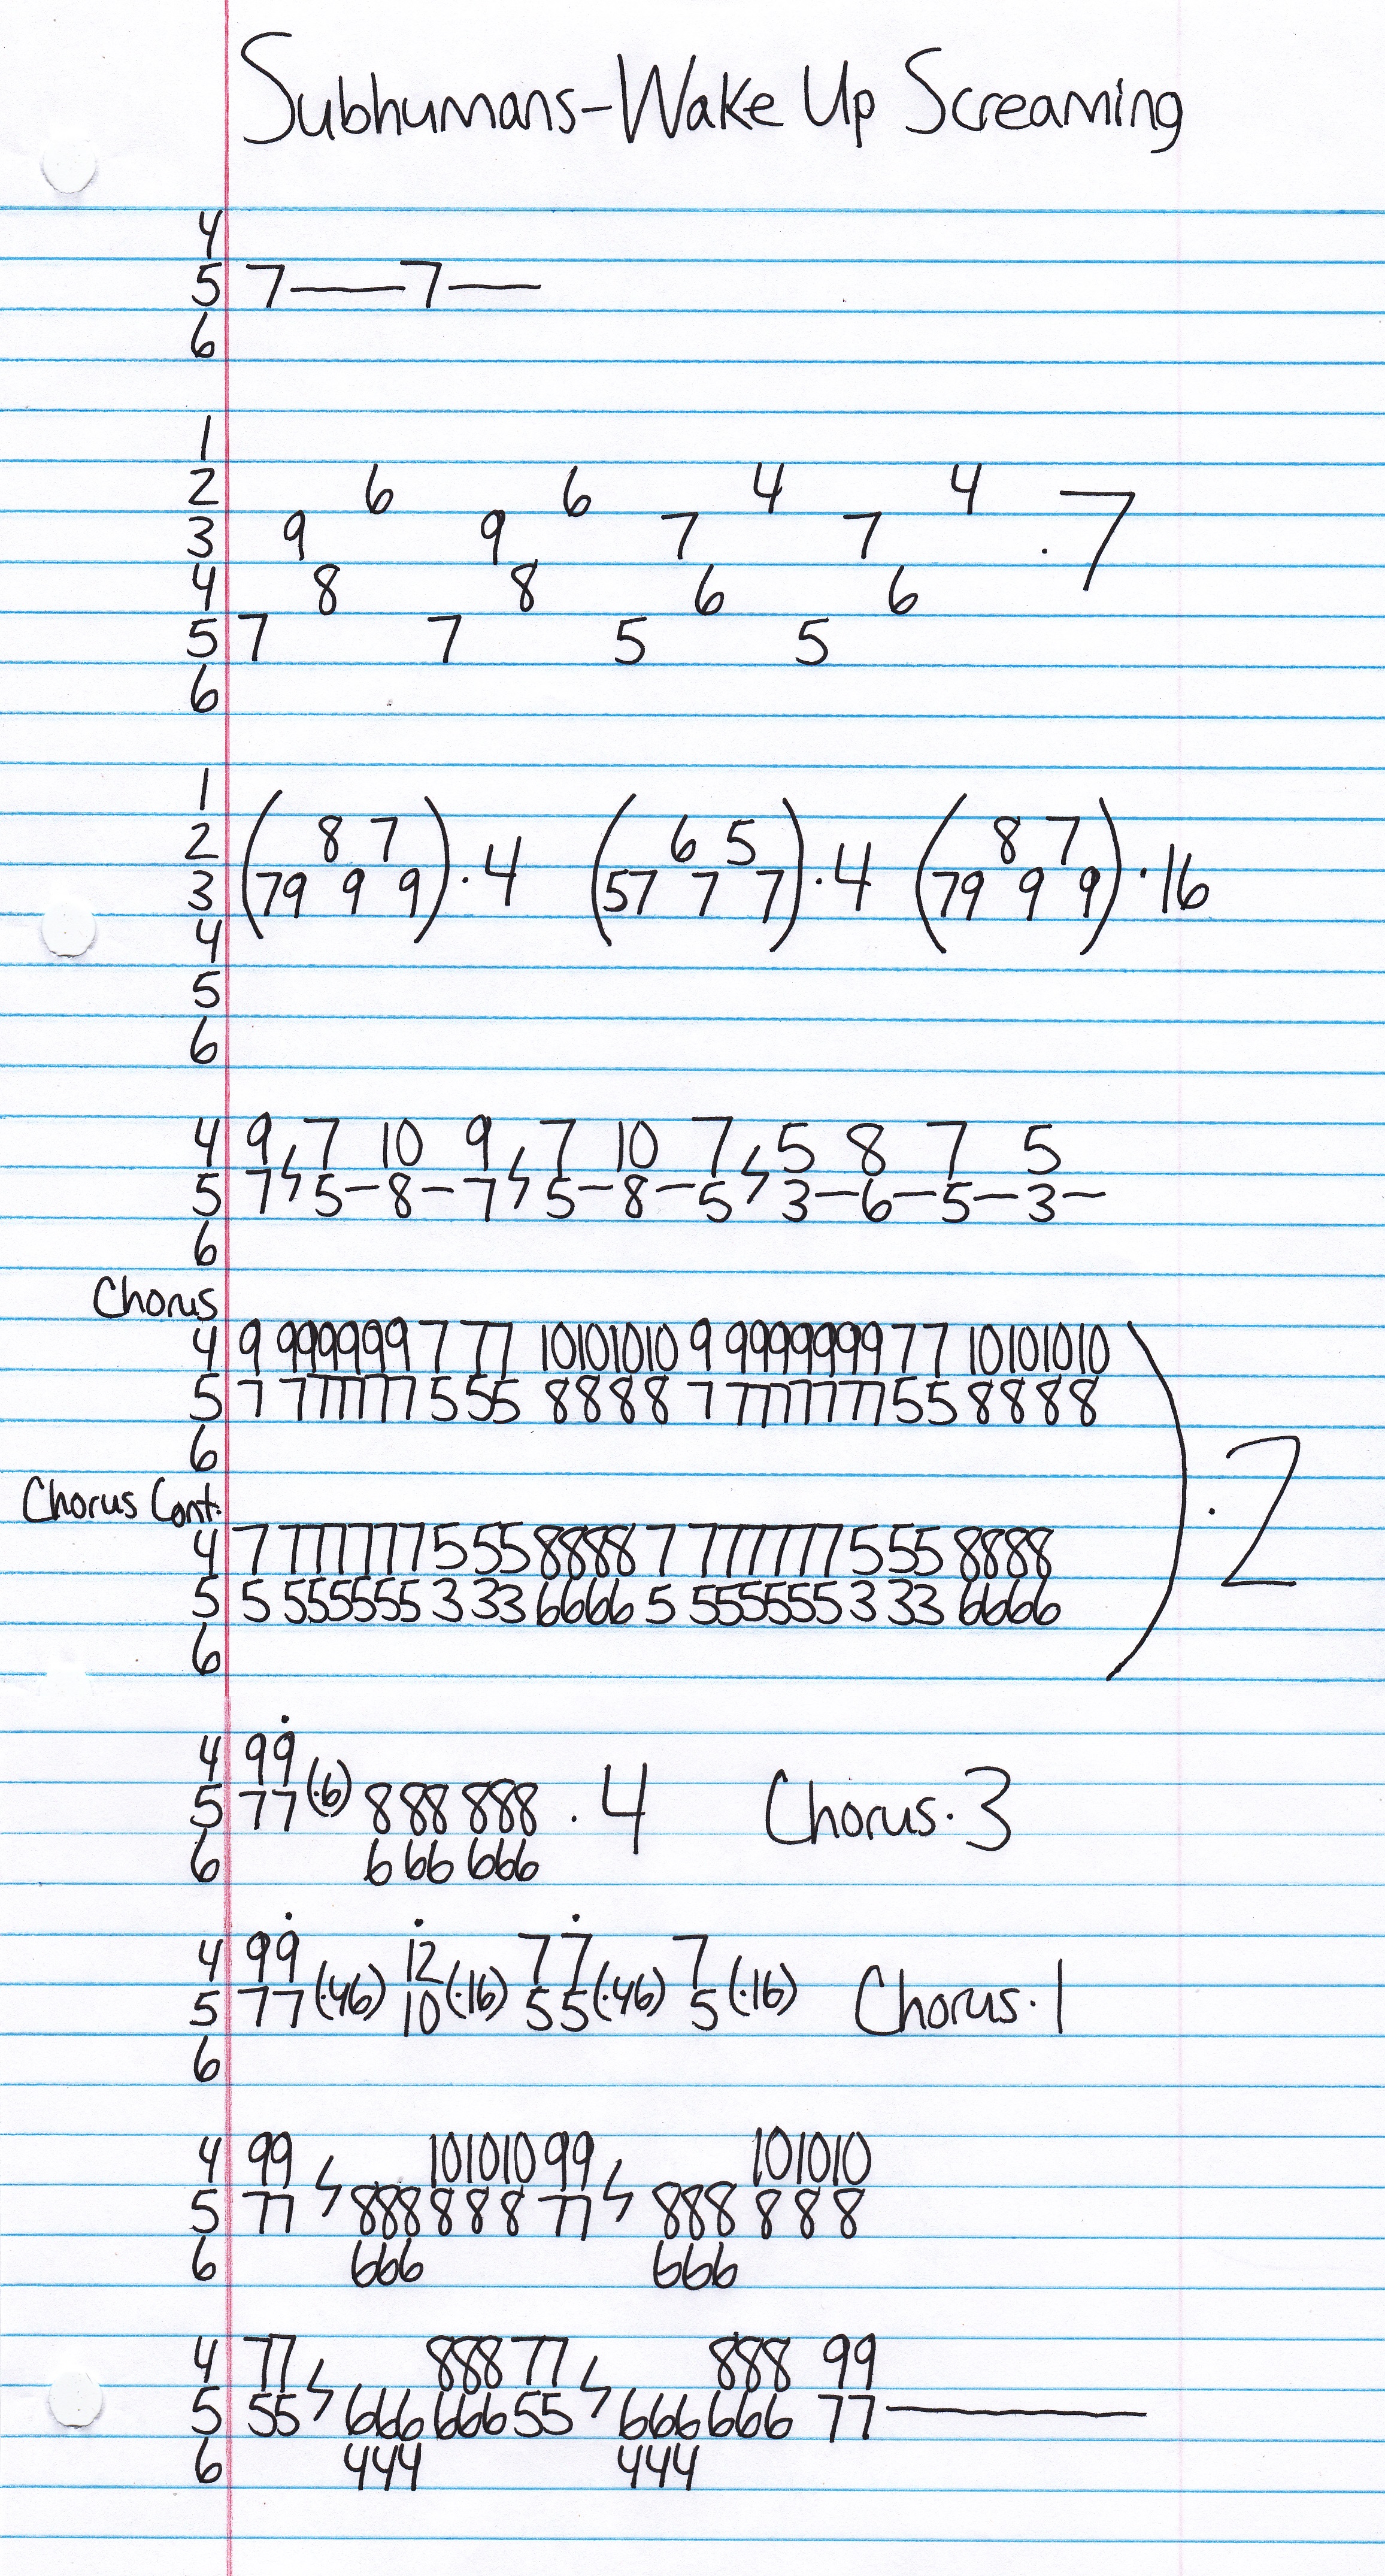 Subhumans-Wake Up Screaming
4
5 7——7—
6
1
2 6 6 4 4
3 9 9 7 7 ·7
4 8 8 6 6
5 7 7 5 5
6
1
2 ( 8 7 )·4 ( 6 5 )·4 ( 8 7 )·16
3 79 9 9 57 7 7 79 9 9
4
5
6
4 9 7 10 9 7 10 7 5 8 7 5
5 7 5-8-7 5-8-5 3-6-5-3-
6
Chorus
4 9 999999 7 77 10101010 9 9999999 77 10101010
5 7 777777 5 55 8888 7 7777777 55 8888
6
·2
Chorus Cont.
4 7 777777 5 55 8888 7 777777 5 55 8888
5 5 555555 3 33 6666 5 555555 3 33 6666
6
4 99
5 77 (·6) 888 888 ·4 Chorus·3
6 666 666
4 99 12 77 7
5 77 (·46) 10 (·16) 55 (·46) 5 (·16) Chorus·1
6
4 99 101010 99 101010
5 77 888 888 77 888 888
6 666 666
4 77 888 77 888 99
5 55 666 666 55 666 666 77————
6 444 444